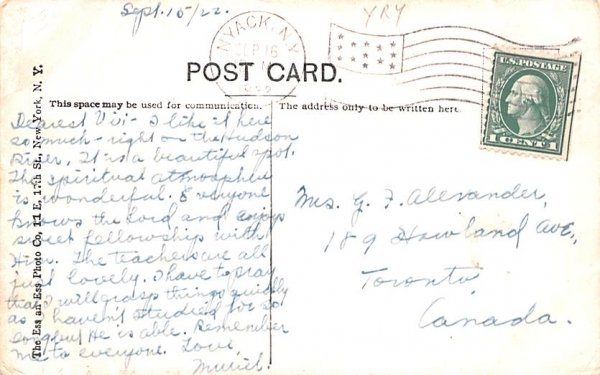 Sept. 15/22.
YRY
NYACK, N.Y.
SEP 16
1922
U.S. POSTAGE
1 CENT 1
POST CARD.
This space may be used for communication.
The address only to be written here.
The Ess an Ess Photo Co., 11 E, 17th St., New York, N. Y.
Dearest Vivi- I like it here
so much - right on the Hudson
River, It is a beautiful spot.
The spiritual atmosphere
is wonderful. Everyone
knows the Lord and enjoys
sweet fellowship with
Him. The teachers are all
just lovely. I have to pray
that I will grasp things quickly
as I haven't studied for so
long but He is able. Remember
me to everyone. Love,
Muriel.
Mrs. G. F. Alexander,
189 Howland Ave.,
Toronto,
Canada.